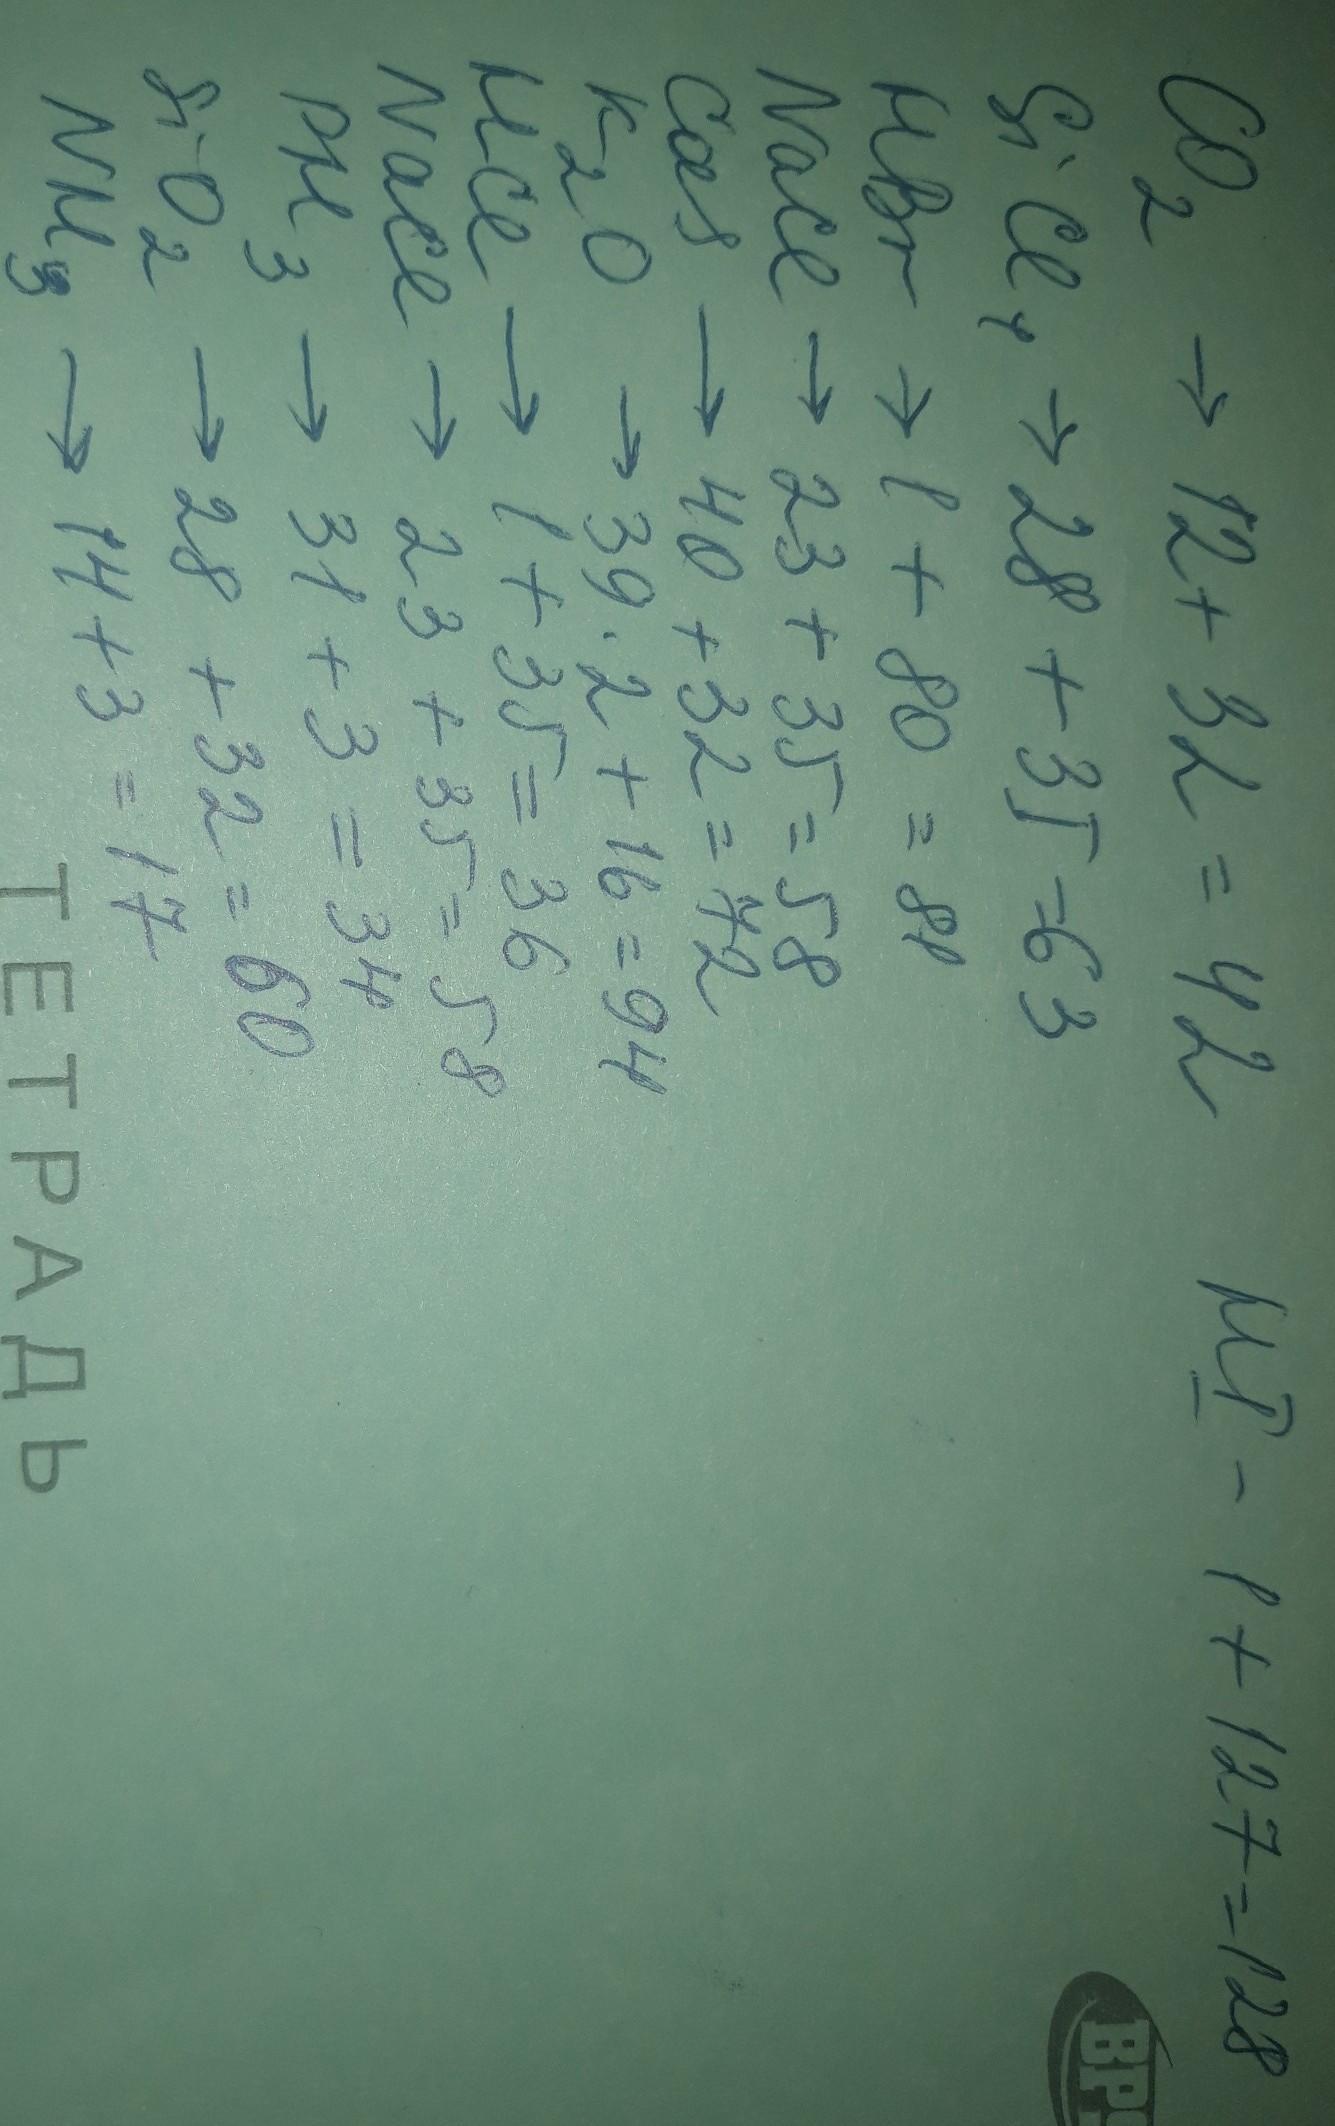 CO2 → 12+32=42 HI - 1+127=128
SiCl4 → 28+35=63
HBr → 1+80=81
NaCl → 23+35=58
CaS → 40+32=72
K2O → 39·2+16=94
HCl → 1+35=36
NaCl → 23+35=58
PH3 → 31+3=34
SiO2 → 28+32=60
NH3 → 14+3=17
ТЕТРАДЬ